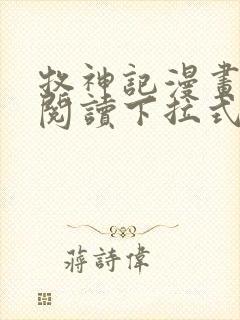 牧神記漫畫
閱讀下拉式
蔣詩偉